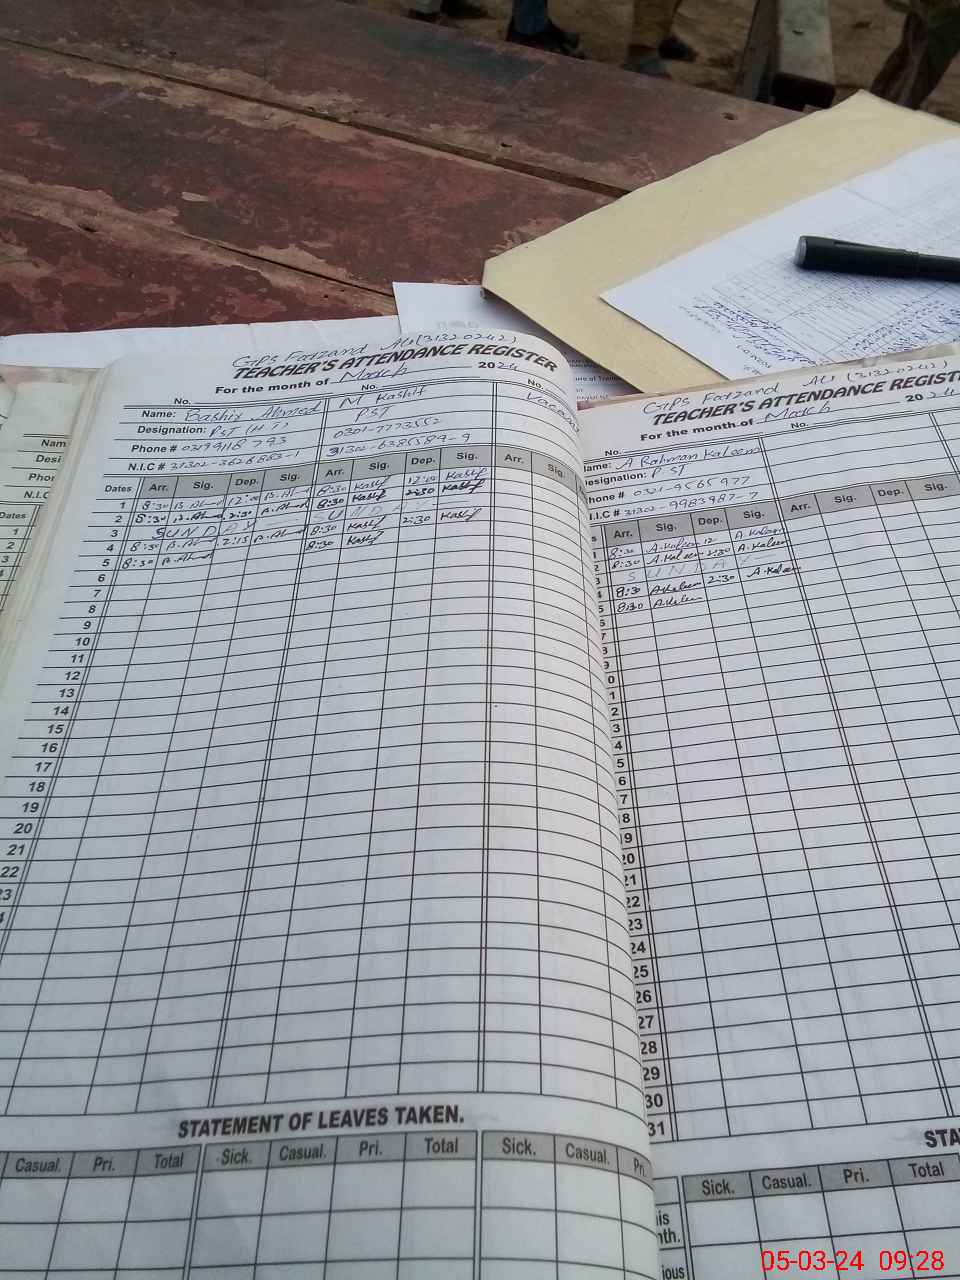 GPS Fatzand Ali (31320242)
TEACHER'S ATTENDANCE REGISTER
For the month of March 2024
No. No. No.
Name: Bashir Ahmed M Kashif Vacant
Designation: PST (H.T) PST
Phone # 03199118793 0301-7773552
N.I.C # 31302-3626883-1 31302-6385389-9
Dates Arr. Sig. Dep. Sig. Arr. Sig. Dep. Sig. Arr. Sig.
1 8:30 B.Ahmd 12:00 B.Ahmd 8:30 Kashif 12:00 Kashif
2 8:30 B.Ahmd 2:30 B.Ahmd 8:30 Kashif 2:30 Kashif
3 SUNDAY SUNDAY
4 8:30 B.Ahmd 2:15 B.Ahmd 8:30 Kashif 2:30 Kashif
5 8:30 B.Ahmd 8:30 Kashif
6
7
8
9
10
11
12
13
14
15
16
17
18
19
20
21
22
23
STATEMENT OF LEAVES TAKEN.
Casual. Pri. Total Sick. Casual. Pri. Total Sick. Casual. Pri.
GPS Fatzand Ali (31320242)
TEACHER'S ATTENDANCE REGIST
For the month.of March 2024
No. No.
Name: A Rahman Kaleem
Designation: PST
Phone # 0321-9565977
N.I.C # 31302-9983987-7
Arr. Sig. Dep. Sig. Arr. Sig. Dep. Sig.
8:30 A.Kaleem 12 A.Kaleem
2 8:30 A.Kaleem 2:30 A.Kaleem
3 SUNDAY
4 8:30 A.Kaleem 2:30 A.Kaleem
5 8:30 A.Kaleem
6
7
8
9
0
1
2
3
4
5
6
7
18
19
20
21
22
23
24
25
26
27
28
29
30
31
STA
Sick. Casual. Pri. Total
05-03-24 09:28